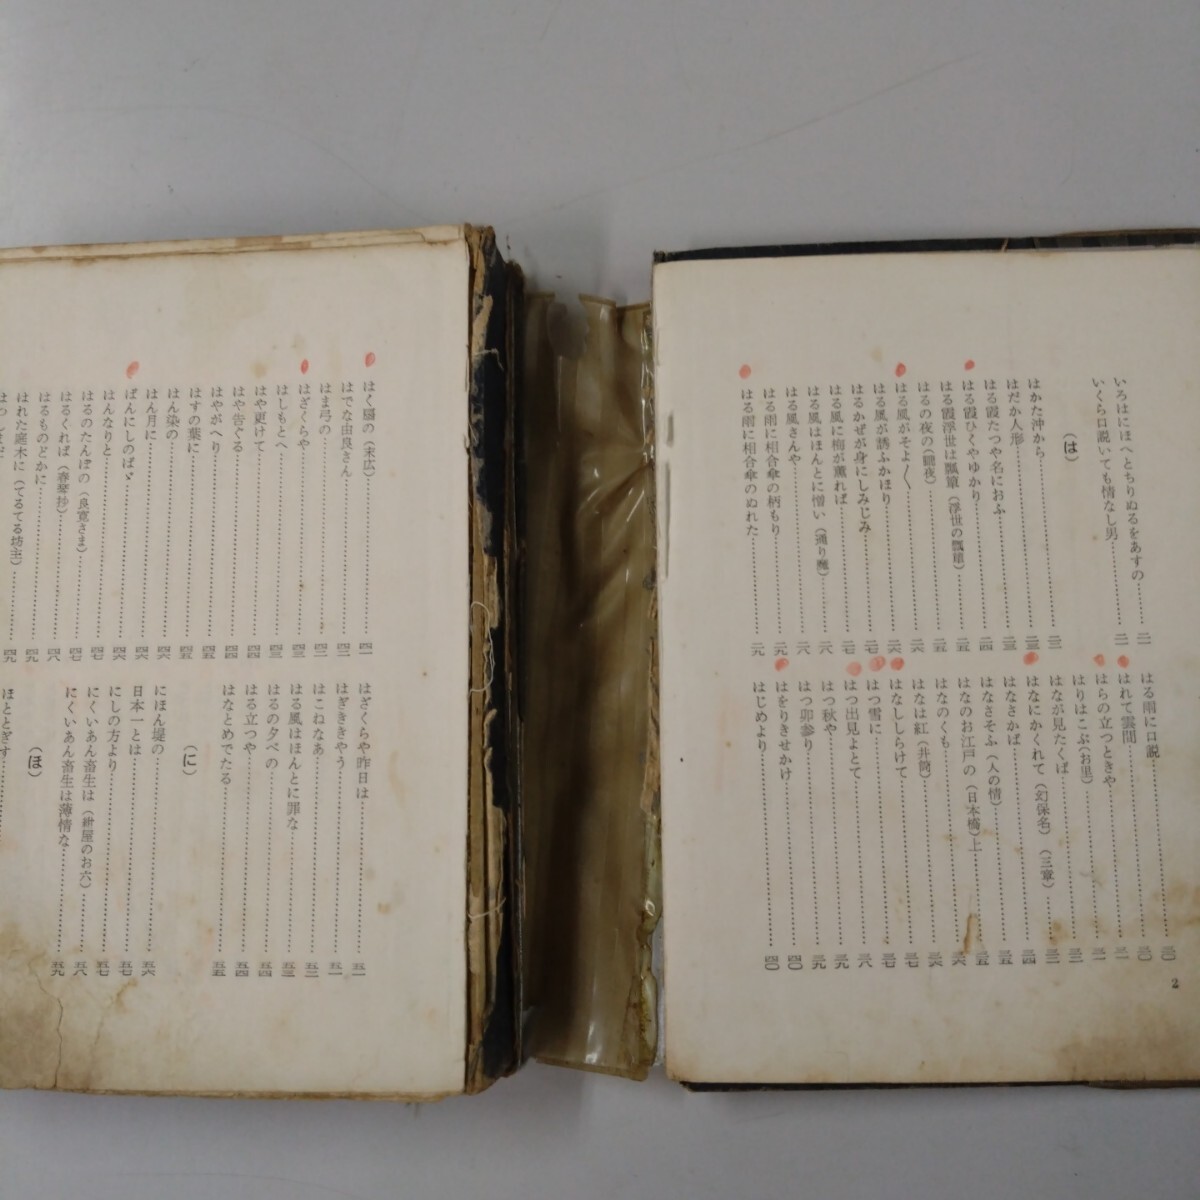 いろはにほへとちりぬるをあすの……二一
いくら口説いても情なし男……二一
(は)
はかた沖から……二二
はだか人形……二三
はる霞たつや名におふ……二四
はる霞ひくやゆかり……二五
はる霞浮世は瓢箪(浮世の瓢箪)……二五
はるの夜の(朧夜)……二六
はる風がそよ〱……二六
はる風が誘ふかほり……二七
はるかぜが身にしみじみ……二七
はる風に柳が薫れば……二八
はる風はほんとに憎い(通り魔)……二八
はる風さんや……二八
はる雨に相合傘の柄もり……二九
はる雨に相合傘のぬれた……二九
はる雨に口説……三〇
はれて雲間……三〇
はらの立つときや……三一
はりはこぶ(お里)……三一
はなが見たくば……三二
はなにかくれて(幻保名)(三章)……三三
はなさかば……三四
はなさそふ(人の情)……三五
はなのお江戸の(日本橋)上……三五
はなのくも……三六
はなは紅(井筒)……三六
はなししらけて……三七
はつ雪に……三七
はつ出見よとて……三八
はつ秋や……三九
はつ卯参り……三九
はをりきせかけ……四〇
はじめより……四〇
2
はく扇の(末広)……四一
はでな由良さん……四二
はま弓の……四二
はざくらや……四三
はしもとへ……四三
はや更けて……四四
はや告ぐる……四四
はやがへり……四五
はすの葉に……四五
はん染の……四六
はん月に……四六
ばんにしのばゞ……四六
はんなりと……四七
はるのたんぽの(良寛さま)……四七
はるくれば(春琴抄)……四八
はるものどかに……四九
はれた庭木に(てるてる坊主)……四九
はざくらや昨日は……五一
はぎききやう……五一
はこねなあ……五二
はる風はほんとに罪な……五三
はるの夕べの……五四
はる立つや……五四
はなとめでたる……五五
(に)
にほん堤の……五六
日本一とは……五七
にしの方より……五七
にくいあん畜生は(紺屋のお六)……五八
にくいあん畜生は薄情な……五九
(ほ)
ほととぎす